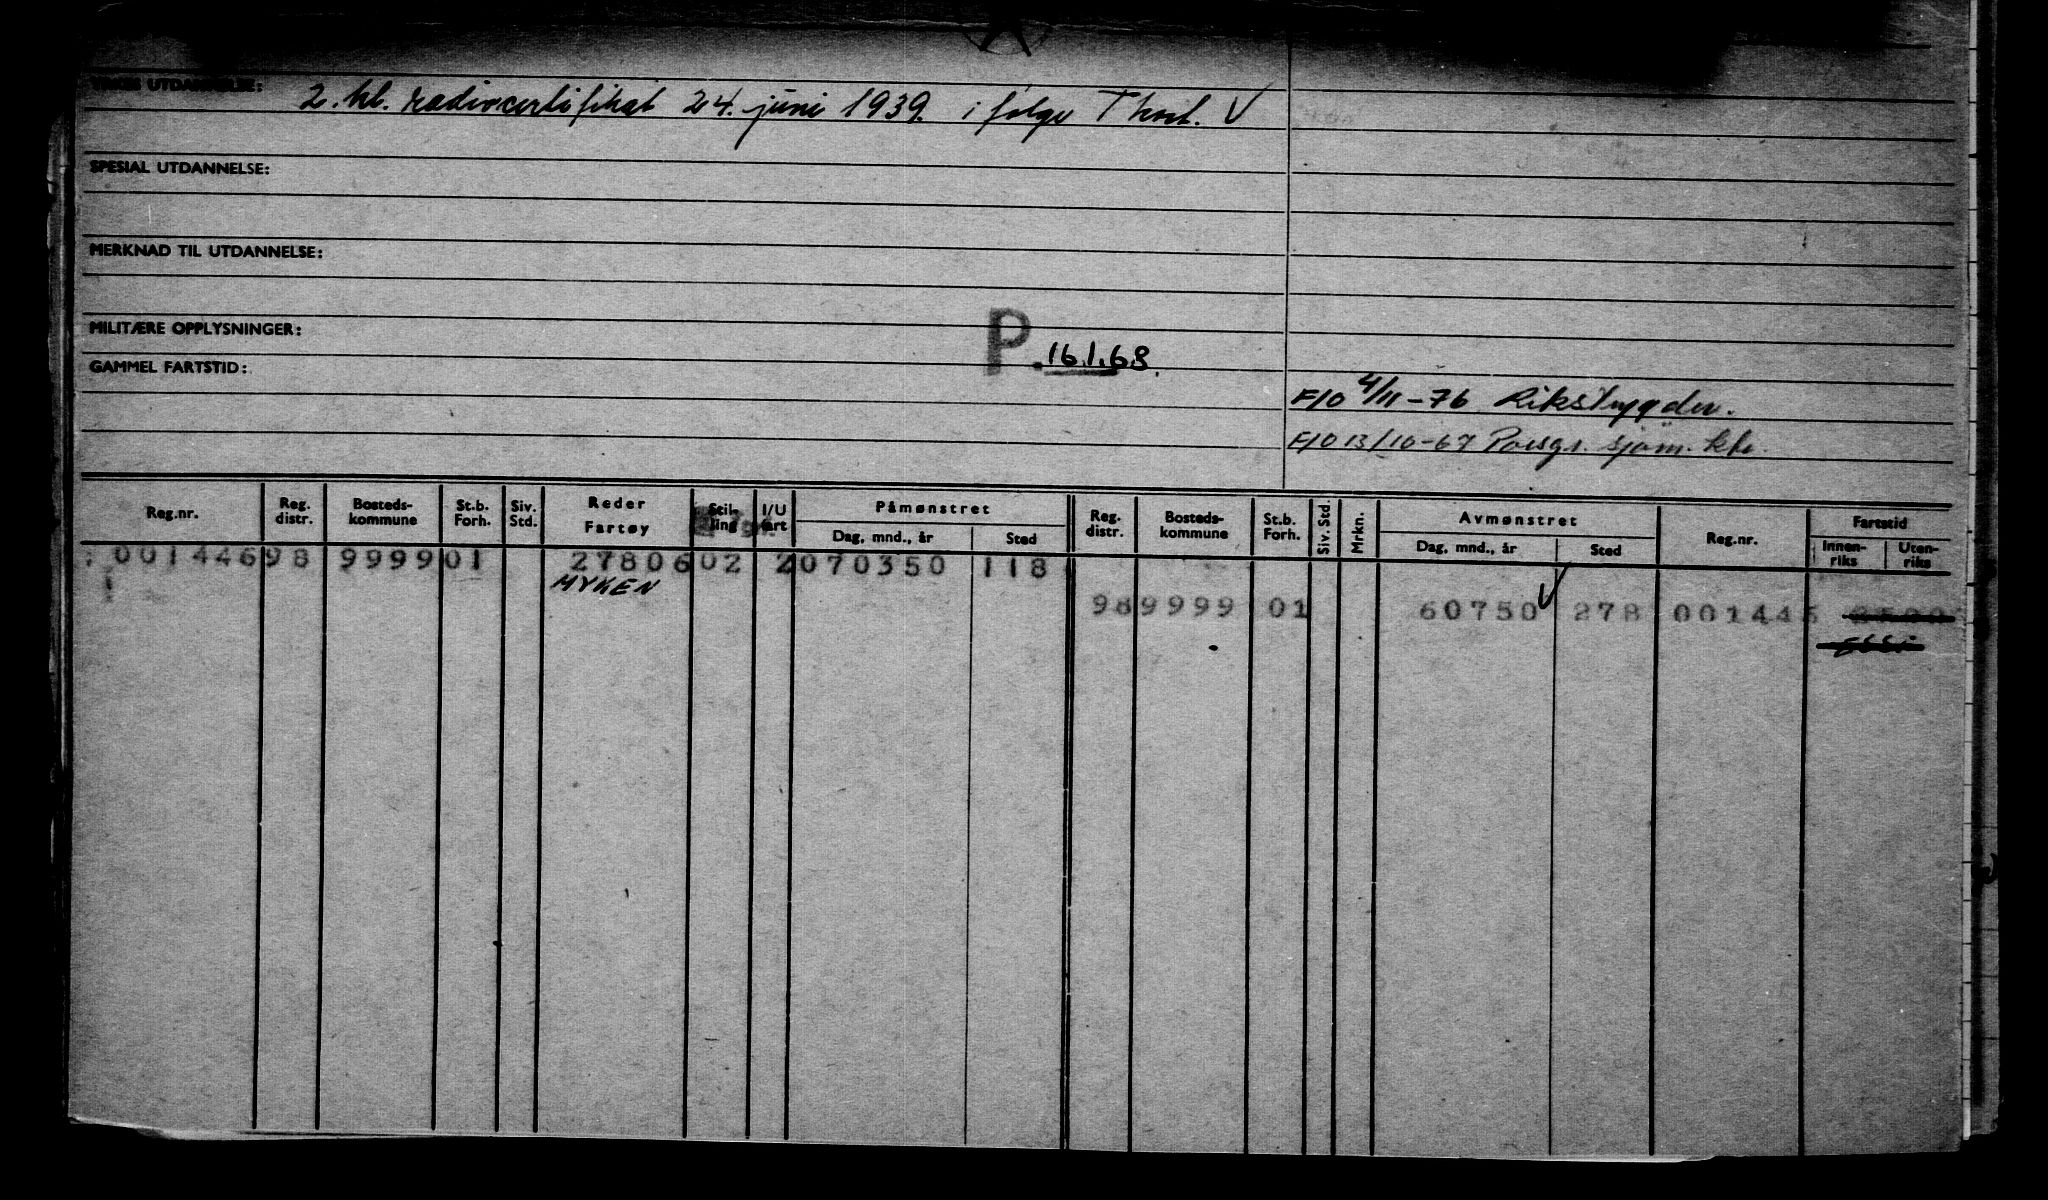 UTDANNELSE: 2. kl. radiocertifikat 24. juni 1939. i følge T kort. V
SPESIAL UTDANNELSE:
MERKNAD TIL UTDANNELSE:
MILITÆRE OPPLYSNINGER:
P. 16.1.68.
GAMMEL FARTSTID:
F/O 4/11-76 Rikstrygdev.
F/O 13/10-67 Porsgr. sjøm. ktr.
Reg.nr. Reg. distr. Bosteds-kommune St.b. Forh. Siv. Std. Reder Fartøy Stil-ling I/U fart Påmønstret Dag, mnd., år Sted Reg. distr. Bosteds-kommune St.b. Forh. Siv. Std. Mrkn. Avmønstret Dag, mnd., år Sted Reg.nr. Fartstid Innen-riks Uten-riks
001446 98 9999 01 27806 02 2 070350 118
MYKEN
98 9999 01 60750 V 278 001446